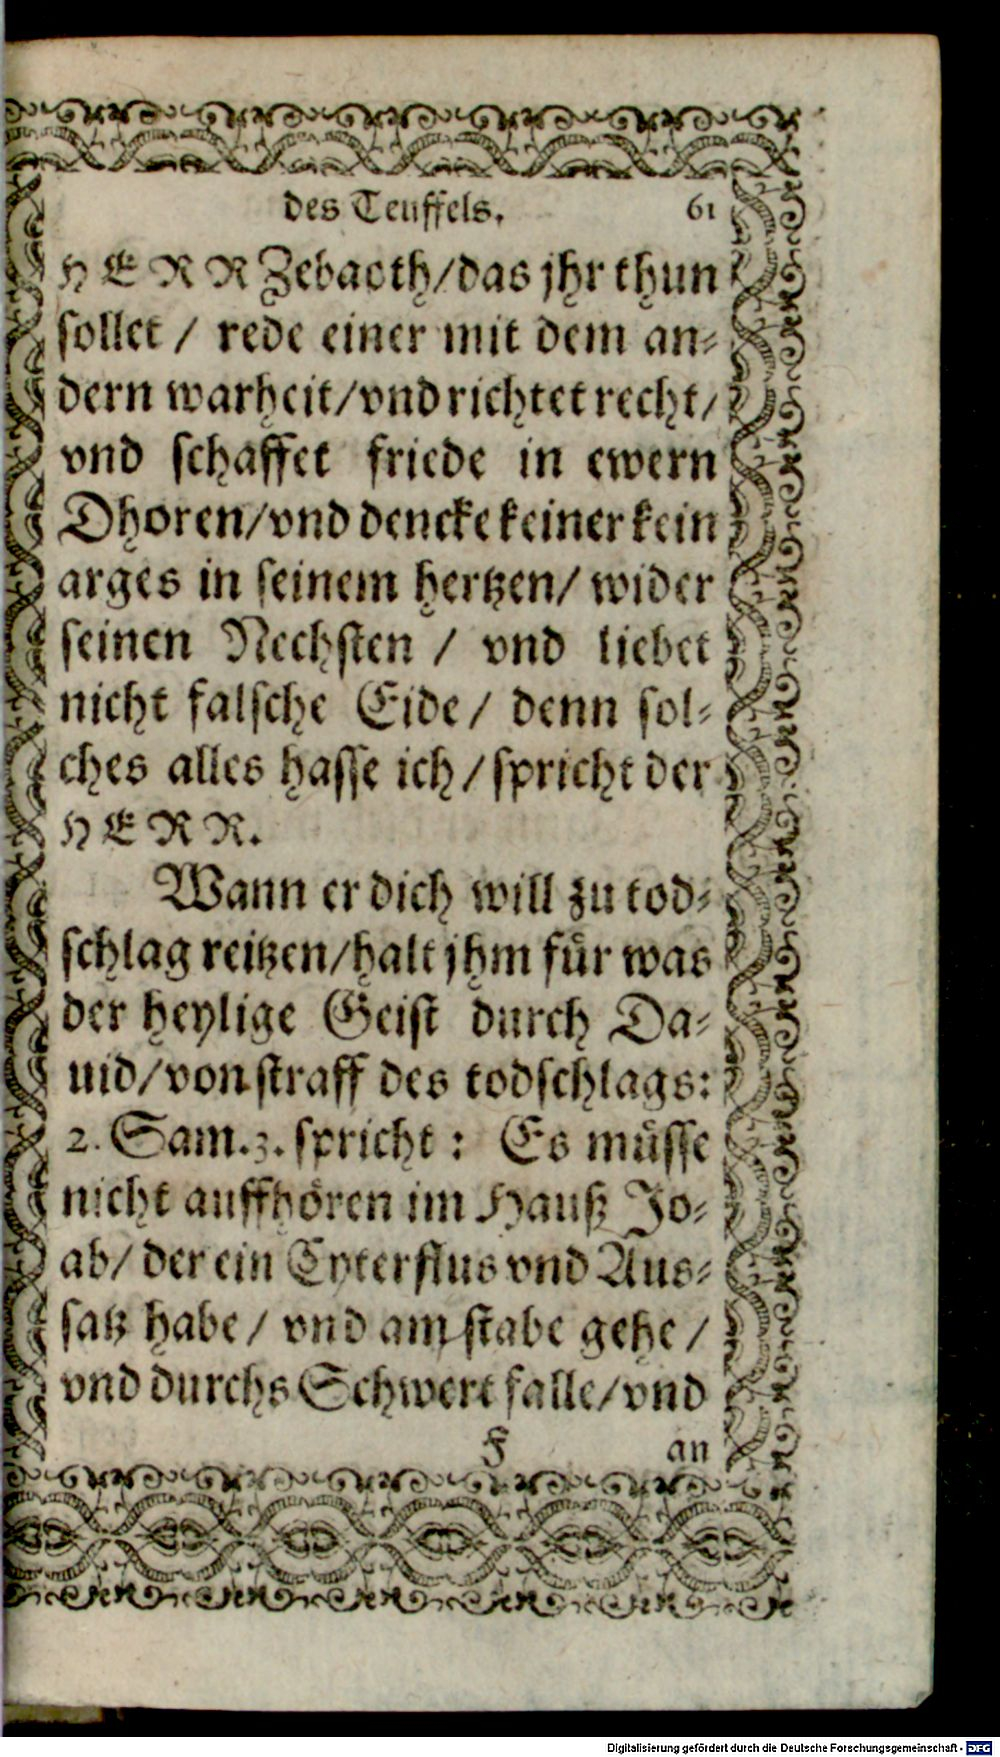 des Teuffels. 61
HERR Zebaoth/das jhr thun
sollet / rede einer mit dem an⸗
dern warheit/vnd richtet recht/
vnd schaffet friede in ewern
Thoren/vnd dencke keiner kein
arges in seinem hertzen/ wider
seinen Nechsten / vnd liebet
nicht falsche Eide/ denn sol⸗
ches alles hasse ich/spricht der
HERR.
Wann er dich will zu tod⸗
schlag reitzen/halt jhm für was
der heylige Geist durch Da⸗
uid/von straff des todschlags:
2. Sam.3. spricht: Es müsse
nicht auffhören im Hauß Jo⸗
ab/ der ein Eyterflus vnd Aus⸗
satz habe/ vnd am stabe gehe/
vnd durchs Schwert falle/vnd
F an
Digitalisierung gefördert durch die Deutsche Forschungsgemeinschaft - DFG